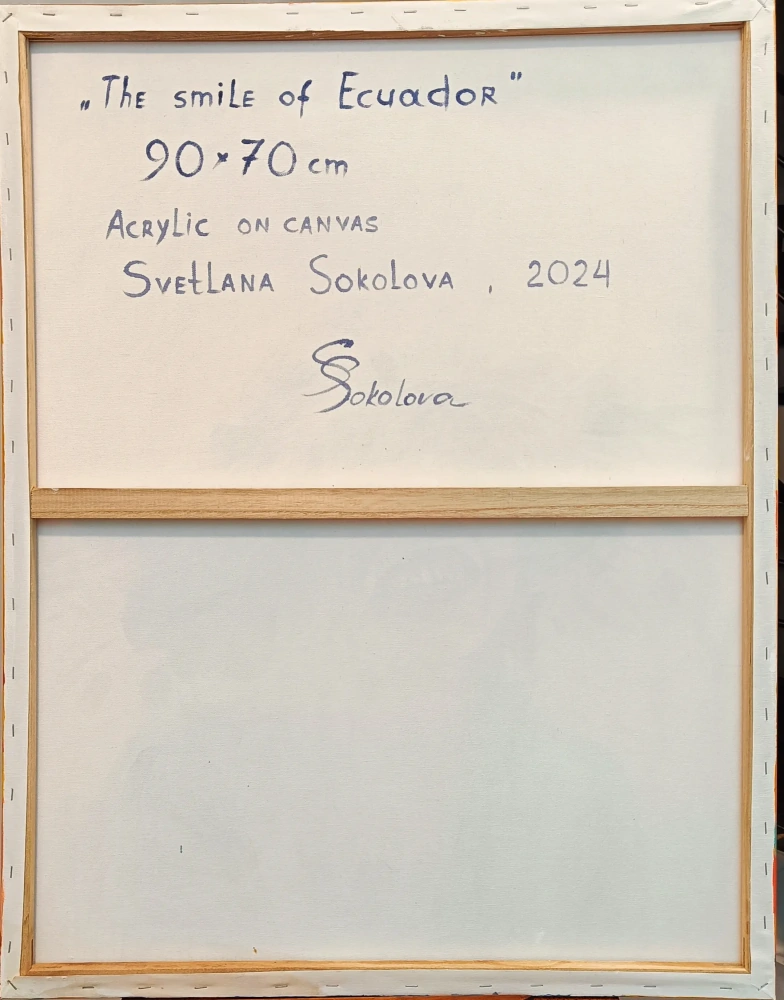 „The smile of Ecuador"
90×70 cm
Acrylic on canvas
Svetlana Sokolova, 2024
SSokolova